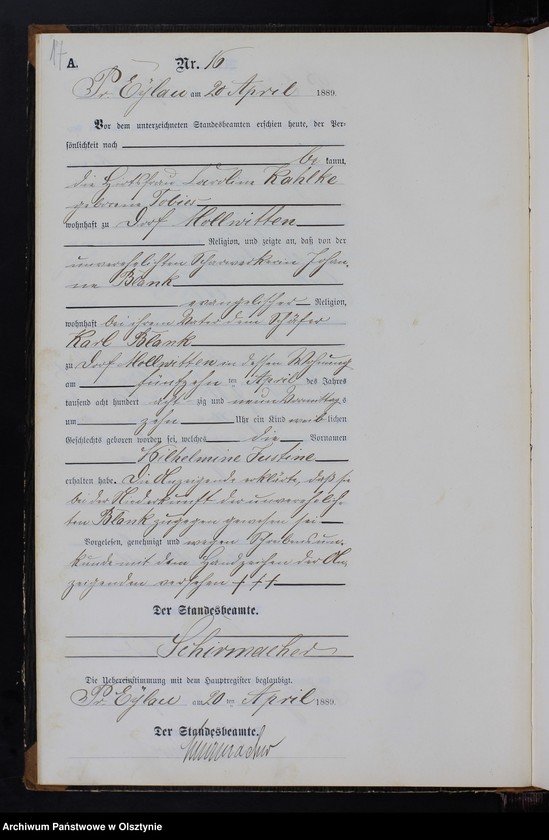 17
A. Nr. 16
Pr. Eylau am 20 April 1889.
Vor dem unterzeichneten Standesbeamten erschien heute, der Per-
sönlichkeit nach
be kannt,
die Hirtsfrau Caroline Kahlke
geborene Tobies
wohnhaft zu Dorf Mollwitten
Religion, und zeigte an, daß von der
unverehelichten Scharwerkerin Johan-
ne Blank
evangelischer Religion,
wohnhaft bei ihrem Vater dem Schäfer
Karl Blank
zu Dorf Mollwitten in dessen Wohnung
am fünfzehn ten April des Jahres
tausend acht hundert acht zig und neun Vormittags
um zehn Uhr ein Kind weib lichen
Geschlechts geboren worden sei, welches die Vornamen
Wilhelmine Justine
erhalten habe. Die Anzeigende erklärte, daß sie
bei der Niederkunft der unverehelich-
ten Blank zugegen gewesen sei
Vorgelesen, genehmigt und wegen Schreibensun-
kunde mit dem Handzeichen der An-
zeigenden versehen +++
Der Standesbeamte.
Schirmacher
Die Uebereinstimmung mit dem Hauptregister beglaubigt.
Pr. Eylau am 20 ten April 1889.
Der Standesbeamte.
Schirmacher
Archiwum Państwowe w Olsztynie